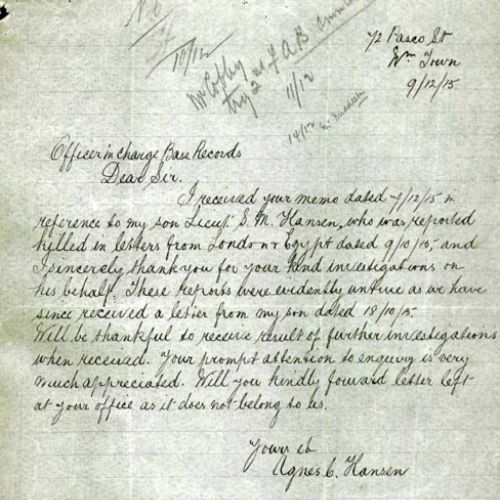 No
10/12
Mr Cobby
try 2
11/12
14/12
72 Pasco St
Wm Town
9/12/15
Officer in charge Base Records
Dear Sir.
I received your memo dated 7/12/15 in
reference to my son Lieut S. M. Hansen, who was reported
killed in letters from London & Egypt dated 9/10/15, and
I sincerely thank you for your kind investigations on
his behalf. These reports were evidently untrue as we have
since received a letter from my son dated 18/10/15
Will be thankful to receive result of further investigations
when received. Your prompt attention to enquiry is very
much appreciated. Will you kindly forward letter left
at your office as it does not belong to us.
Yours etc
Agnes C. Hansen